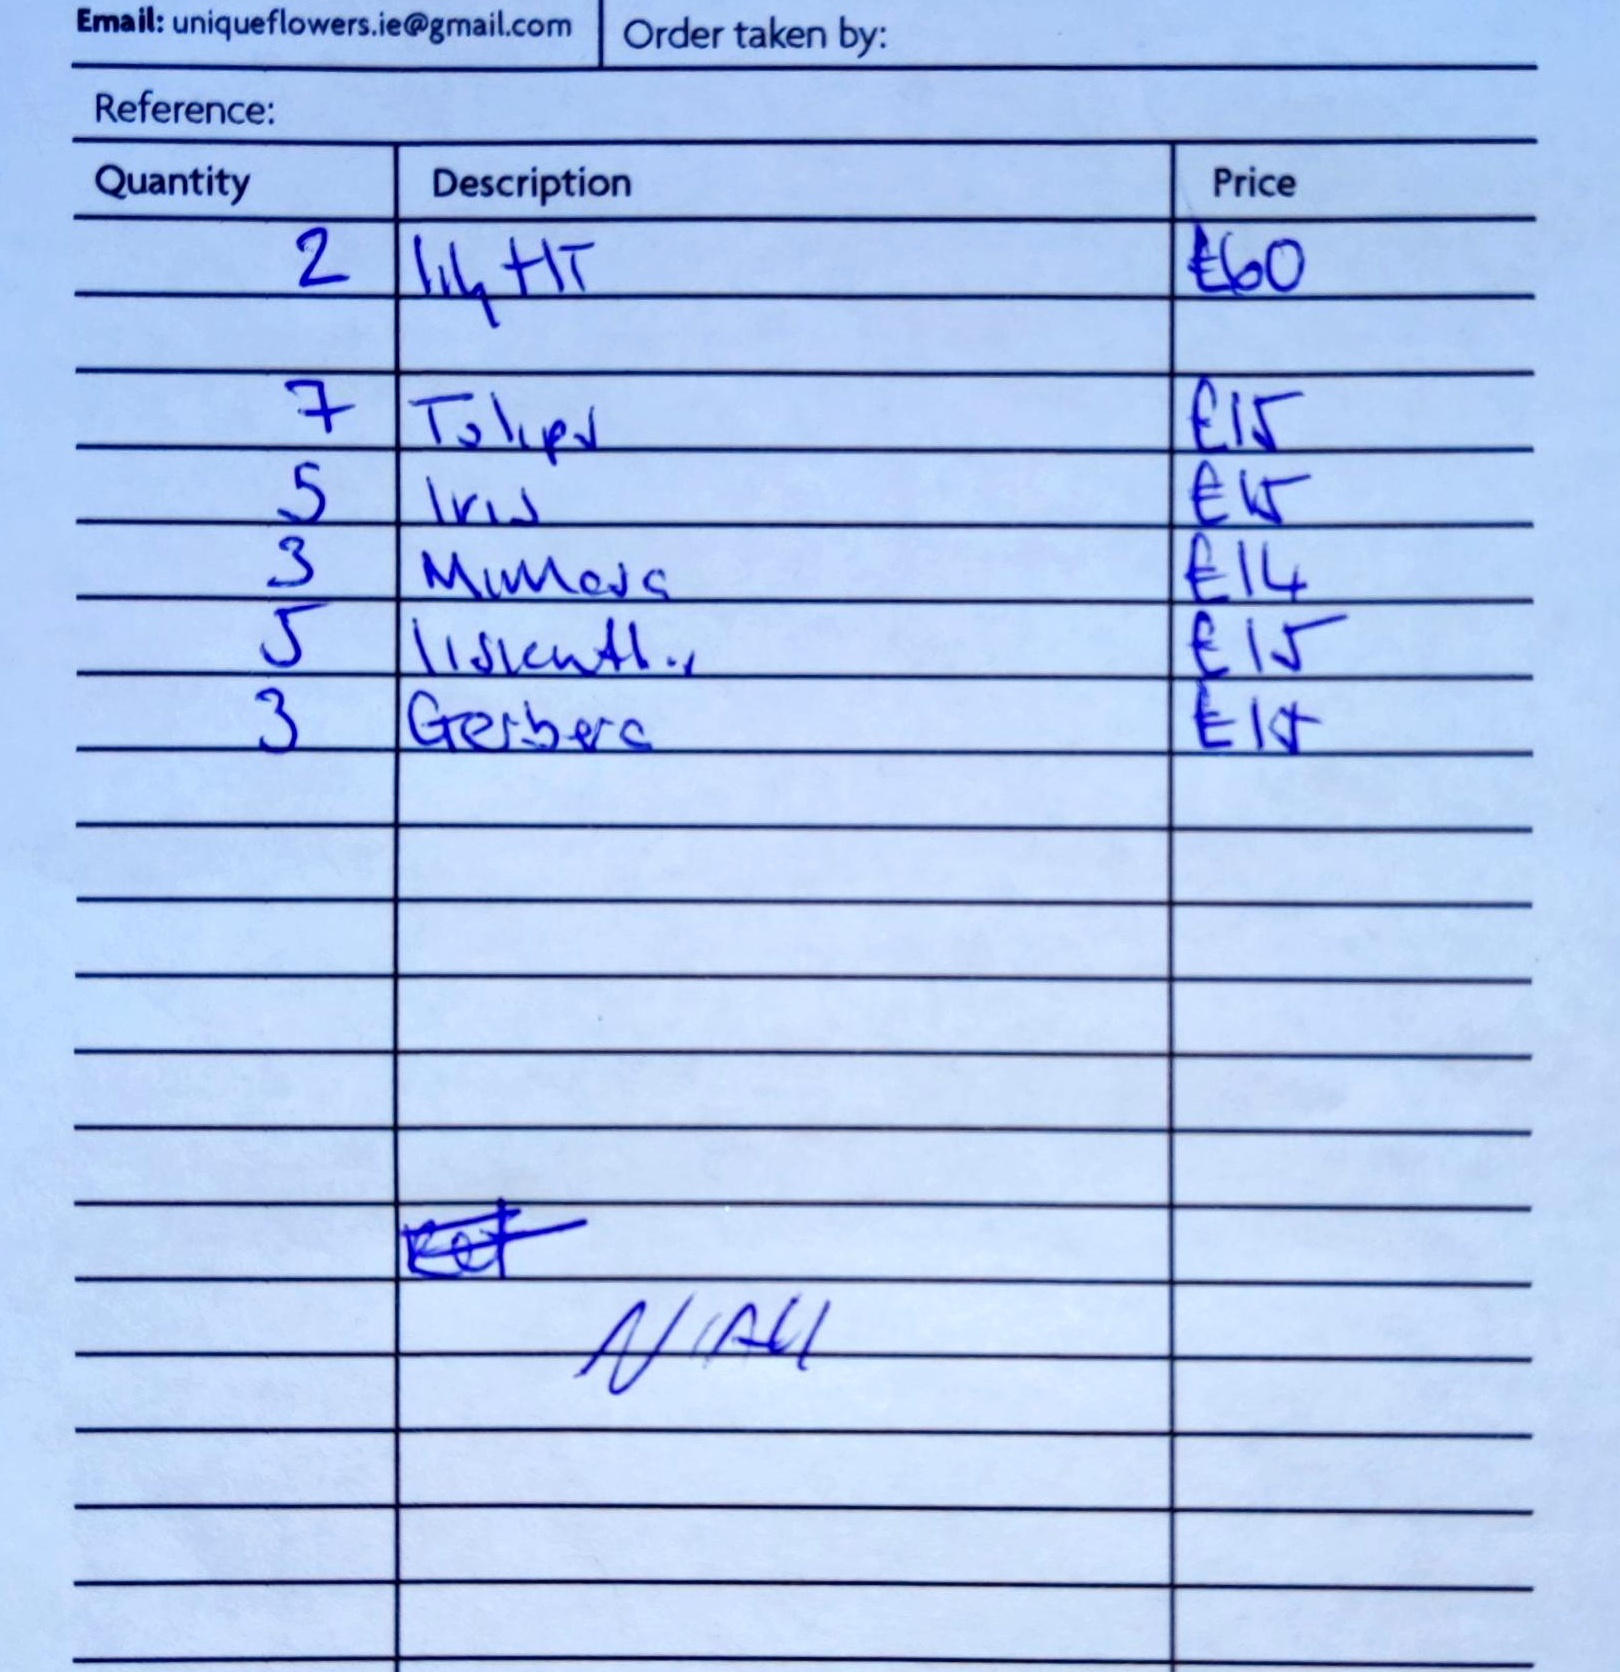 Email: uniqueflowers.ie@gmail.com Order taken by:
Reference:
Quantity Description Price
2 lily HT €60
7 Tulips €15
5 Iris €15
3 Mimosa €14
5 €15
3 Gerbera
NIALL